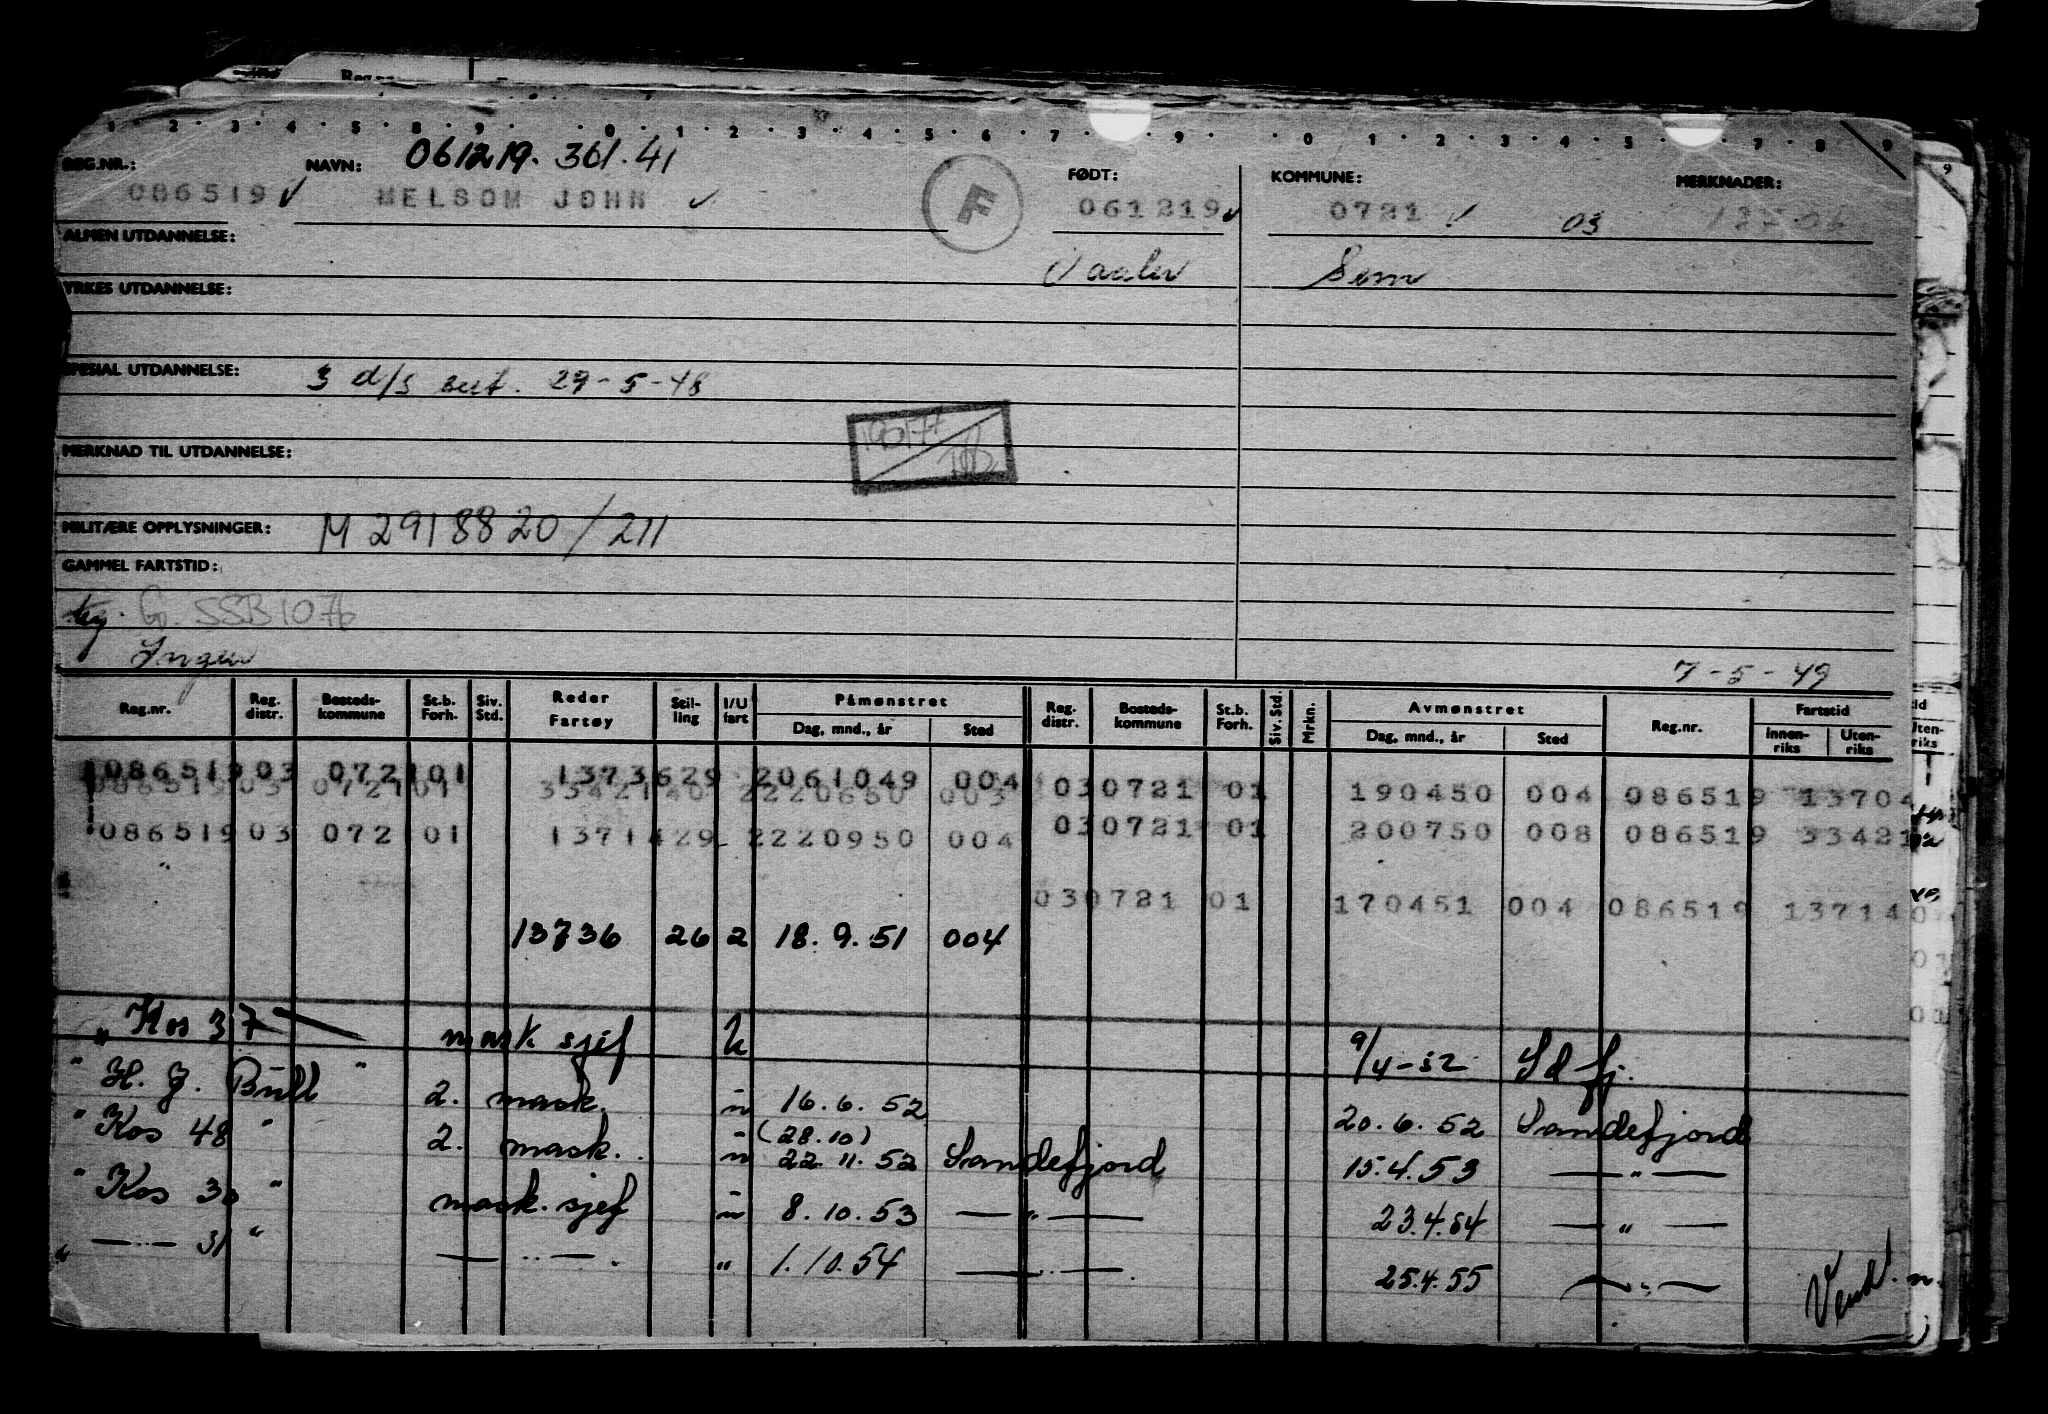 1 · 2 · 3 · 4 · 5 · 8 · 9 · · 0 · 1 · 2 · 3 · 4 · 5 · 6 · 7 · 9 · · 0 1 · 2 · 3 · 4 · 5 · 6 · 7 · 8 · 9
REG.NR.: NAVN: 061219. 361.41 FØDT: KOMMUNE: MERKNADER:
086519 ✓ MELSOM JOHN ✓ F 061219 ✓ 0721 ✓ 03
ALMEN UTDANNELSE: Vaaler Sem
YRKES UTDANNELSE:
SPESIAL UTDANNELSE: 3 d/s sert. 29-5-48
MERKNAD TIL UTDANNELSE:
MILITÆRE OPPLYSNINGER: M 2918820/211
GAMMEL FARTSTID:
G. SSB 1076
Ingen 7-5-49
Reg.nr. Reg. distr. Bosteds-kommune St.b. Forh. Siv. Std. Reder Fartøy Stil-ling I/U fart Påmønstret Dag, mnd., år Sted Reg. distr. Bosteds-kommune St.b. Forh. Siv. Std. Mrkn. Avmønstret Dag, mnd., år Sted Reg.nr. Fartstid Innen-riks Uten-riks
086519 03 0721 01 13736 29 2 061049 004 03 0721 01 190450 004 086519 13704
086519 03 0721 01 33421 40 2 220650 003 03 0721 01 200750 008 086519 33421
086519 03 072 01 13714 29 2 220950 004 03 0721 01 170451 004 086519 13714
13736 26 2 18.9.51 004
" Kos 37 mask sjef u 9/4-52 Sdfj.
" H. J. Bull " 2. mask. u 16.6.52 20.6.52 Sandefjord
" Kos 48 " 2. mask. u (28.10) 22.11.52 Sandefjord 15.4.53 — " —
" Kos 30 " mask. sjef u 8.10.53 — " — 23.4.54 — " —
" — 31 " — " — . " 1.10.54 — " — . 25.4.55 — " —
Vend.